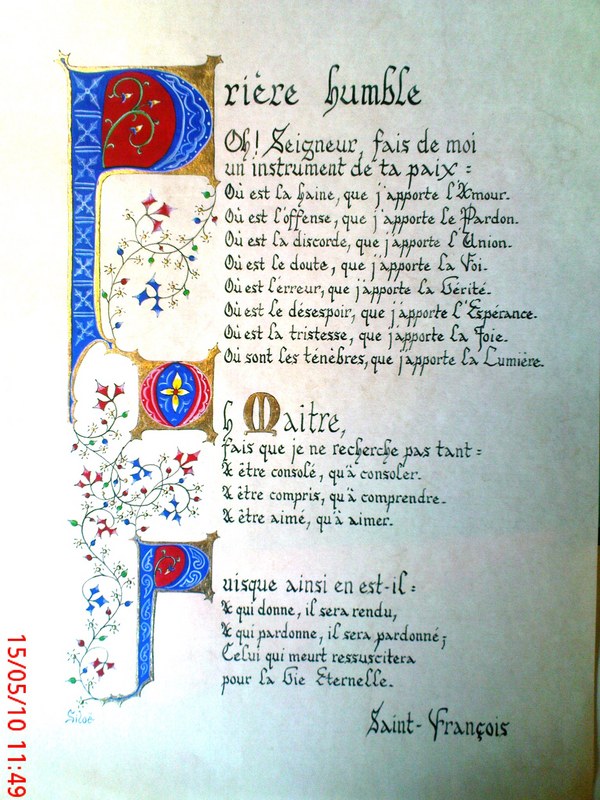 Prière humble
Oh! Seigneur, fais de moi
un instrument de ta paix :
Où est la haine, que j'apporte l'Amour.
Où est l'offense, que j'apporte le Pardon.
Où est la discorde, que j'apporte l'Union.
Où est le doute, que j'apporte la Foi.
Où est l'erreur, que j'apporte la Vérité.
Où est le désespoir, que j'apporte l'Espérance.
Où est la tristesse, que j'apporte la Joie.
Où sont les ténèbres, que j'apporte la Lumière.
Oh Maitre,
fais que je ne recherche pas tant :
A être consolé, qu'à consoler.
A être compris, qu'à comprendre.
A être aimé, qu'à aimer.
Puisque ainsi en est-il :
A qui donne, il sera rendu,
A qui pardonne, il sera pardonné;
Celui qui meurt ressuscitera
pour la Vie Eternelle.
Saint-François
15/05/10 11:49